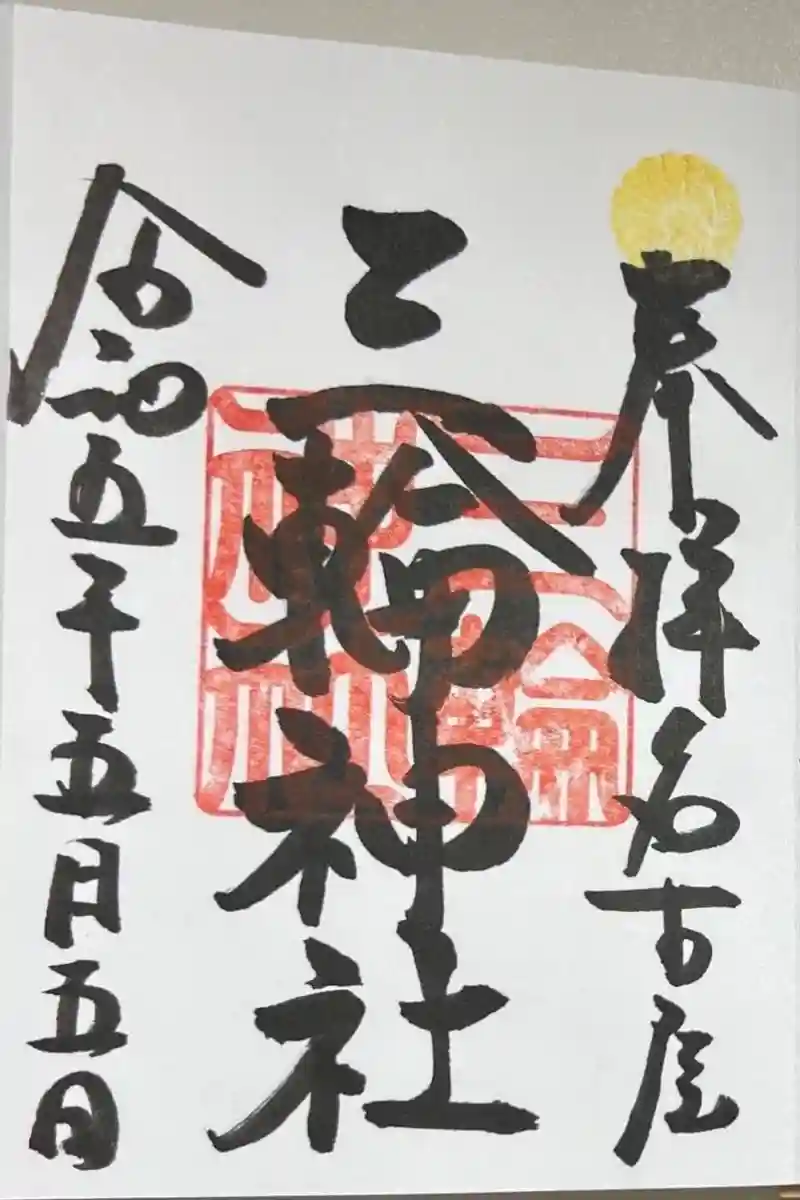 奉拝名古屋
三輪神社
令和五年五月五日
三輪
神社